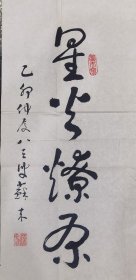 星火燎原
乙卯仲夏八三叟蘇木